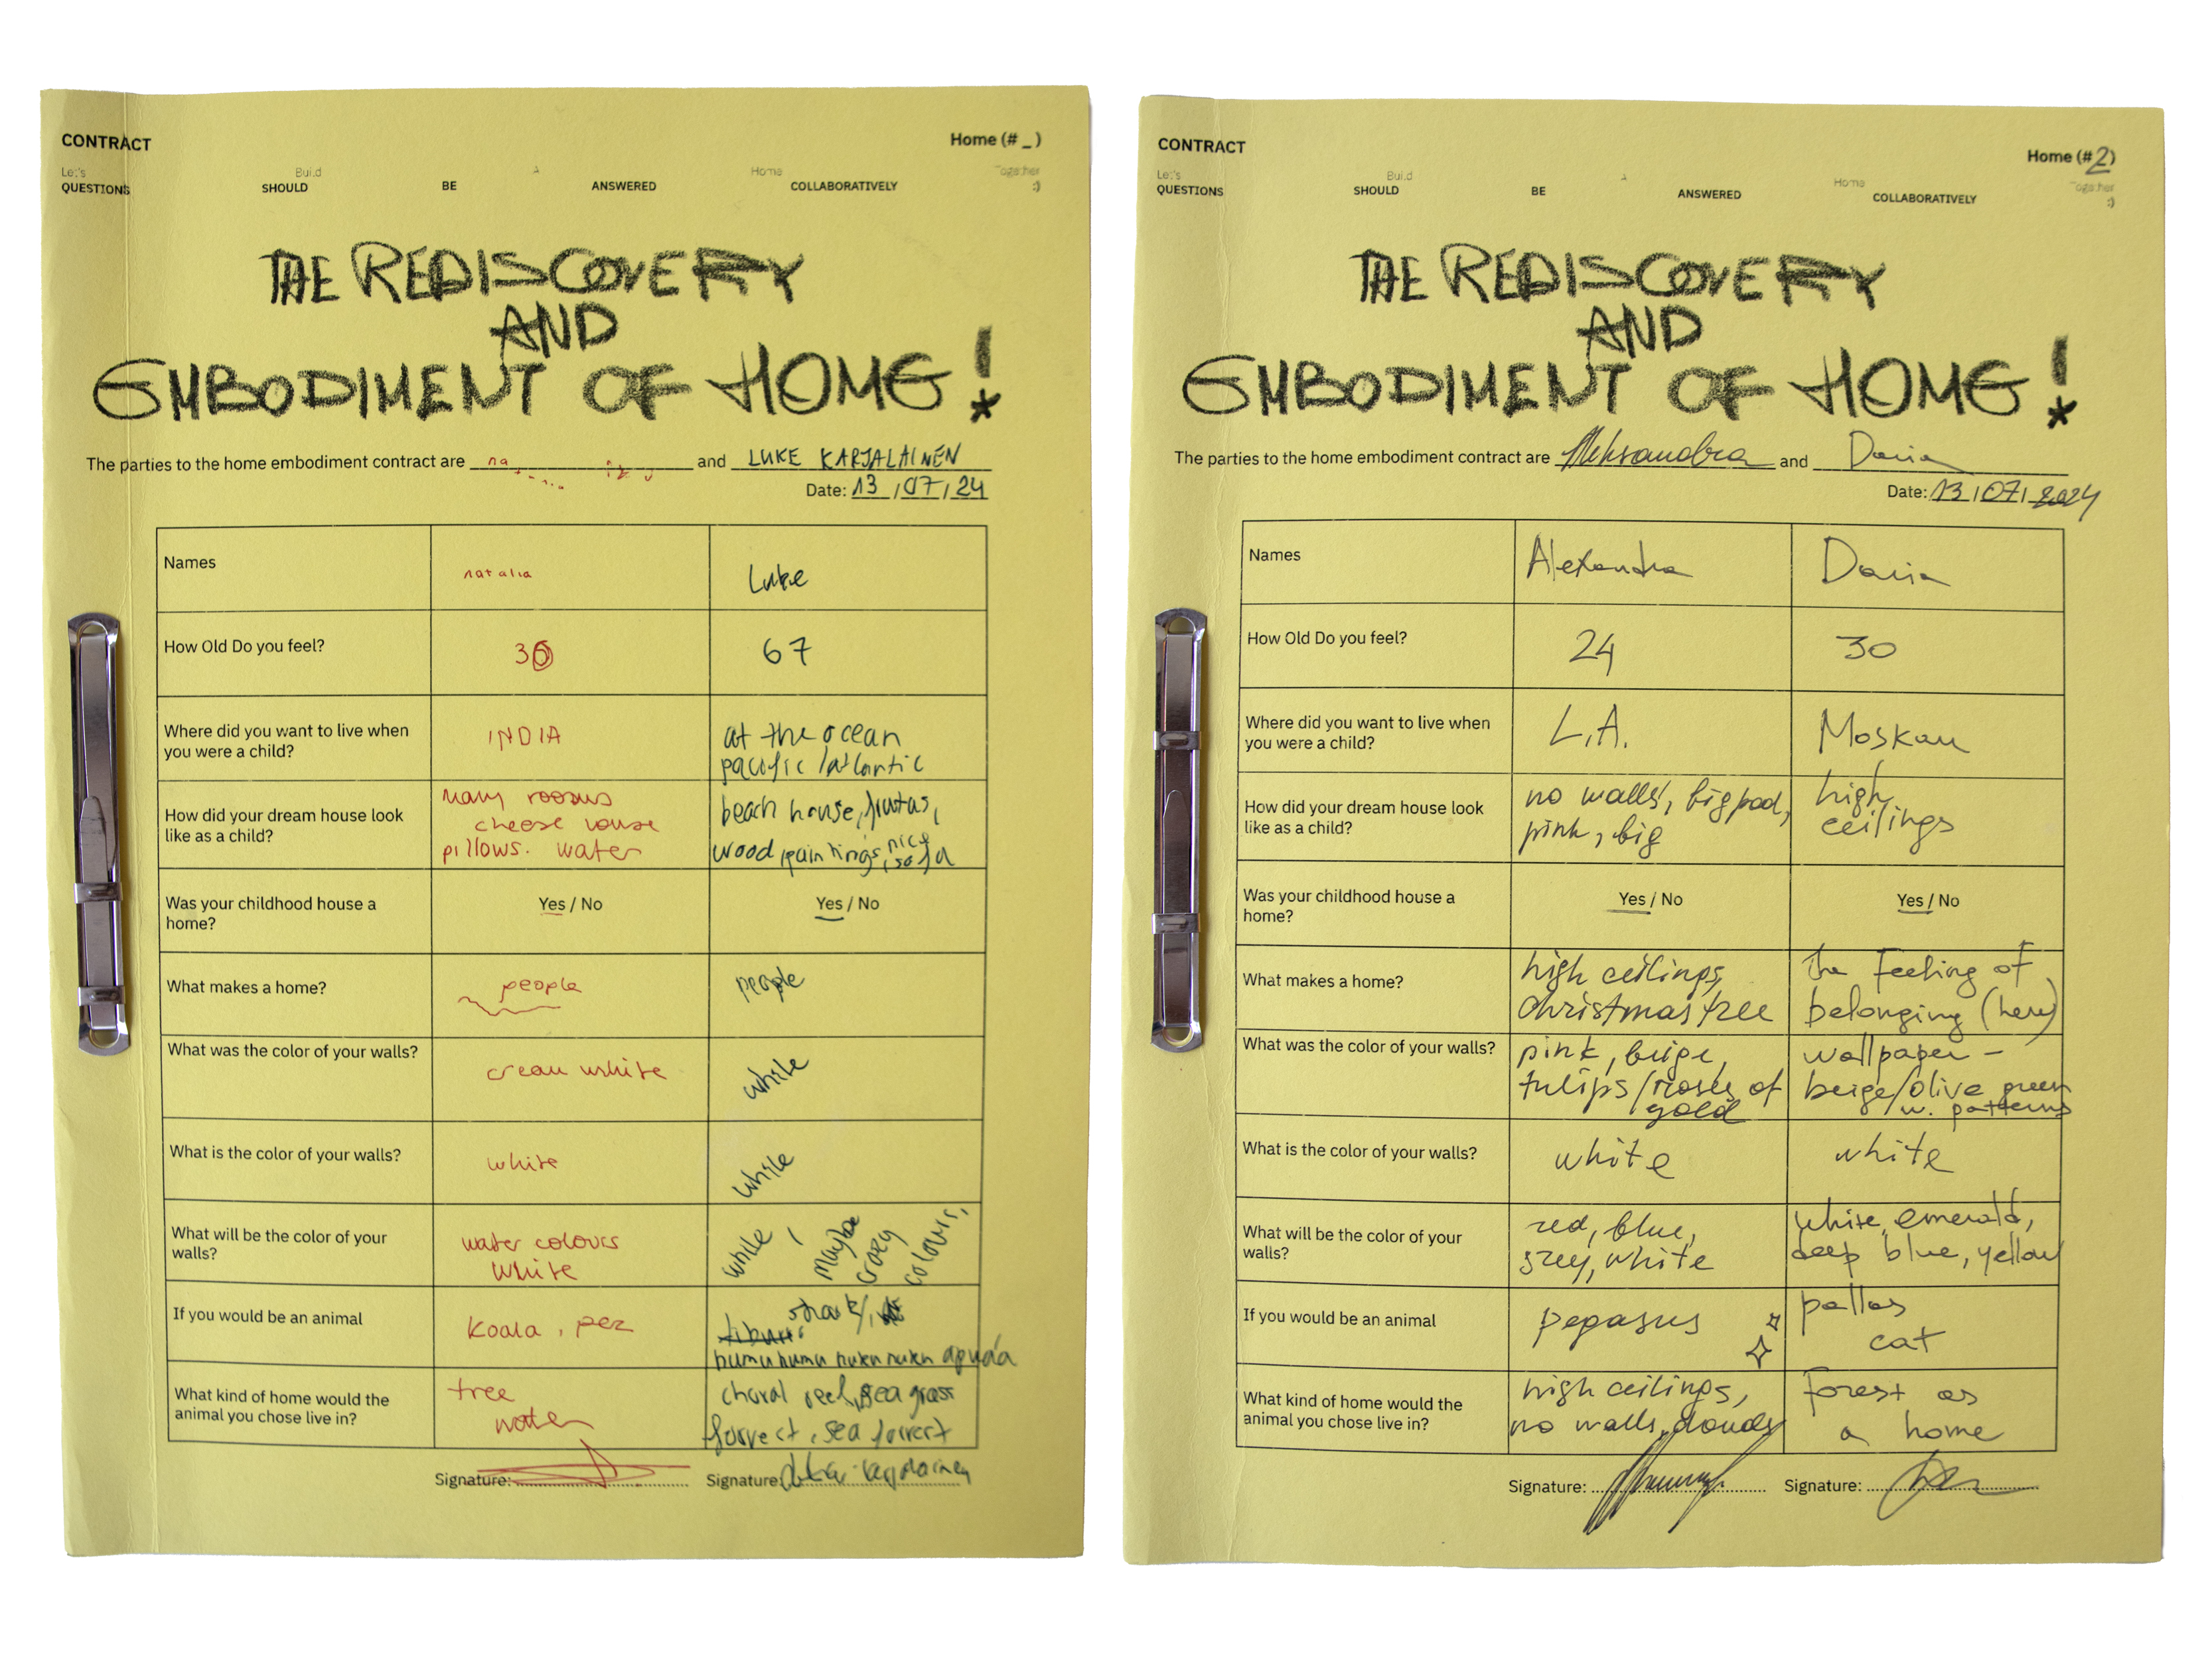 CONTRACT
Home (# _ )
Let's Build A Home Together :)
QUESTIONS SHOULD BE ANSWERED COLLABORATIVELY
THE REDISCOVERY
AND
EMBODIMENT OF HOME!*
The parties to the home embodiment contract are na and LUKE KARJALAINEN
Date: 13 / 07 / 24
Names natalia Luke
How Old Do you feel? 30 67
Where did you want to live when INDIA at the ocean
you were a child? pacific / atlantic
many rooms
How did your dream house look cheese house beach house,
like as a child? pillows. water wood paintings, nice sofa
Was your childhood house a Yes / No Yes / No
home?
What makes a home? people people
What was the color of your walls? cream white white
What is the color of your walls? white white
What will be the color of your water colours white / Maybe crazy colours,
walls? white
If you would be an animal koala, pez shark,
humuhumu nuku nuku apuáa
What kind of home would the tree choral reef, sea grass
animal you chose live in? water forrest, sea forrest
Signature: Signature:
CONTRACT
Home (#2)
Let's Build A Home Together :)
QUESTIONS SHOULD BE ANSWERED COLLABORATIVELY
THE REDISCOVERY
AND
EMBODIMENT OF HOME!*
The parties to the home embodiment contract are Aleksandra and Daria
Date: 13 / 07 / 2024
Names Alexandra Daria
How Old Do you feel? 24 30
Where did you want to live when L.A. Moskau
you were a child?
How did your dream house look no walls, big pool, high
like as a child? pink, big ceilings
Was your childhood house a Yes / No Yes / No
home?
What makes a home? high ceilings, the feeling of
christmas tree belonging (here)
What was the color of your walls? pink, beige, wallpaper –
tulips/roses of beige/olive green
gold w. patterns
What is the color of your walls? white white
What will be the color of your red, blue, white, emerald,
walls? grey, white deep blue, yellow
If you would be an animal pegasus pallas
cat
What kind of home would the high ceilings, forest as
animal you chose live in? no walls, clouds a home
Signature: Signature: